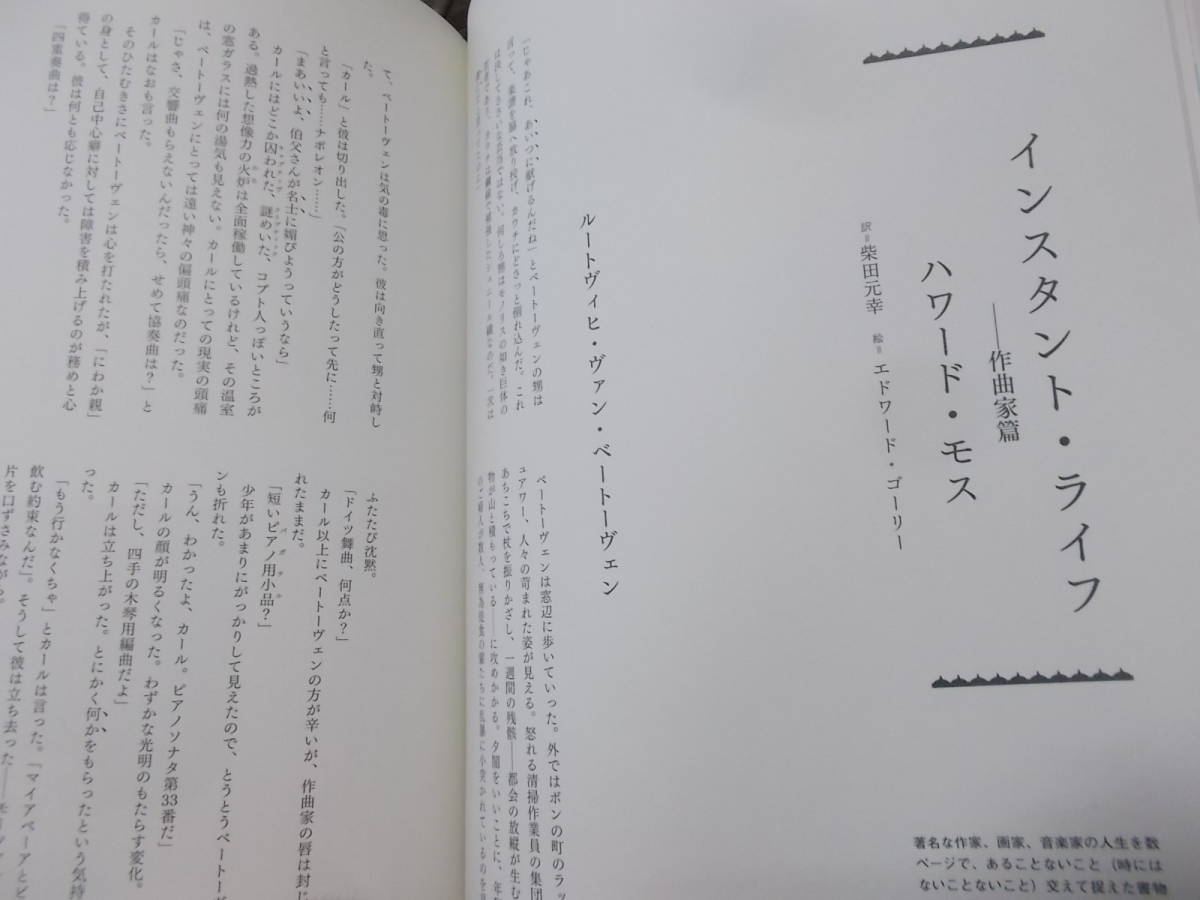 インスタント・ライフ
――作曲家篇
ハワード・モス
訳=柴田元幸 絵=エドワード・ゴーリー
著名な作家、画家、音楽家の人生を数
ページで、あることないこと（時には
ないことないこと）交えて捉えた書物
ルートヴィヒ・ヴァン・ベートーヴェン
「じゃあこれ、あいつに献げるんだね」とベートーヴェンの甥は
言って、楽譜を脇へ放り投げ、カウチにどさっと倒れ込んだ。これ
は決してささいな芸当ではない。何しろ甥はモノリスの如き巨体の
ベートーヴェンは窓辺に歩いていった。外ではボンの町のラッ
シュアワー、人々の苛まれた姿が見える。怒れる清掃作業員の集団
あちこちで杖を振りかざし、一週間の残骸――都会の放縦が生む
物が山と積もっている――に攻めかかる。夕闇をいいことに、年
て、ベートーヴェンは気の毒に思った。彼は向き直って甥と対峙し
た。
「カール」と彼は切り出した。「公の方がどうしたって先に……何
と言っても……ナポレオン……」
「まあいいよ、伯父さんが名士に媚びようっていうなら」
カールにはどこか囚われた、謎めいた、コプト人っぽいところが
ある。過熱した想像力の火炉は全面稼働しているけれど、その温室
の窓ガラスには何の湯気も見えない。カールにとっての現実の頭痛
は、ベートーヴェンにとっては遠い神々の偏頭痛なのだった。
「じゃさ、交響曲もらえないんだったら、せめて協奏曲は？」と
カールはなおも言った。
そのひたむきさにベートーヴェンは心を打たれたが、「にわか親」
の身として、自己中心癖に対しては障害を積み上げるのが務めと心
得ている。彼は何とも応じなかった。
「四重奏曲は？」
ふたたび沈黙。
「ドイツ舞曲、何点か？」
カール以上にベートーヴェンの方が辛いが、作曲家の唇は封じ
れたままだ。
「短いピアノ用小品？」
少年があまりにがっかりして見えたので、とうとうベートーヴ
ンも折れた。
「うん、わかったよ、カール。ピアノソナタ第33番だ」
カールの顔が明るくなった。わずかな光明のもたらす変化。
「ただし、四手の木琴用編曲だよ」
カールは立ち上がった。とにかく何かをもらったという気持
った。
「もう行かなくちゃ」とカールは言った。「マイアベーアとビ
飲む約束なんだ」。そうして彼は立ち去った――モーツァ
片を口ずさみながら。